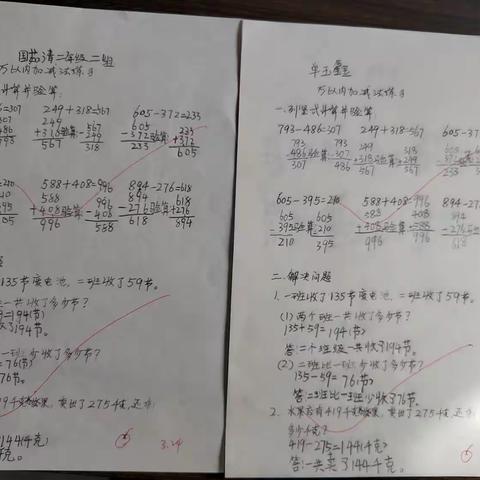 国茹清二年级二班
万以内加减法练习
计算并验算
=307 249+318=567 605-372=233
307 249 605 233
486 +318验算:567 -372验算:+372
793 567 -249 233 605
318
=210 588+408=996 894-276=618
588 996 894 618
+408验算 -408 -276验算 +276
996 588 618 894
135节废电池,二班收了59节。
一共收了多少节?
=194(节)
收了194节
一班少收了多少节?
=76(节)
76节。
419千克苹果,卖出了275千克,还剩
144(千克)
千克。
3.24
万以内加减法练习
一、列竖式计算并验算。
793-486=307 249+318=567 605-37
793 307 249 318 605
-486验算:+486 +318验算+249 -372验算
307 793 567 567 233
605-395=210 588+408=996 894-27
605 605 588 408 894
-395验算-210 +408验算+588 -276验算
210 395 996 996 618
二、解决问题
1、一班收了135节废电池,二班收了59节。
(1)两个班一共收了多少节?
135+59=194(节)
答:二个班级一共收了194节。
(2)二班比一班少收了多少节?
135-59=76(节)
答:二班比一班少收了76节。
2、水果店有419千克苹果,卖出了275千克,还
多少千克?
419-275=144(千克)
答:一共卖了144千克。